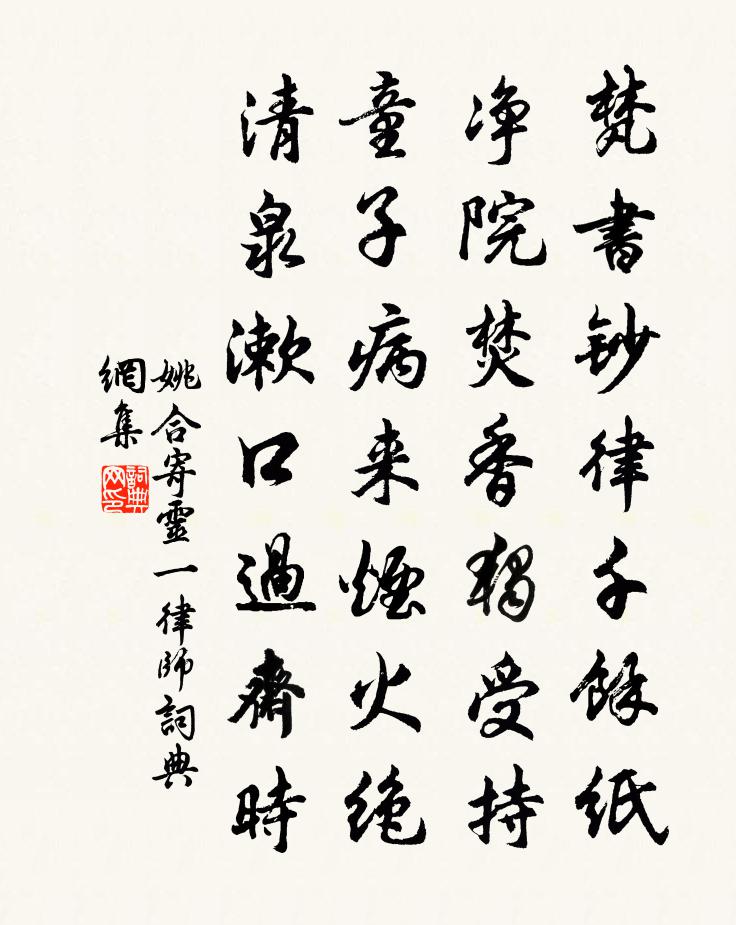 梵書鈔律千餘紙
净院焚香獨受持
童子病来煙火绝
清泉漱口過齋時
姚合寄靈一律師詞典
網集
詞典網印